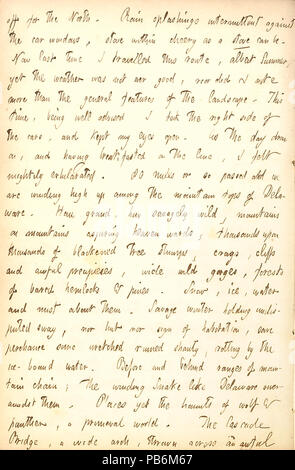 off for the North. Rain splashings intermittent against
the car windows, stove within cheery as a stove can be.
Now last time I travelled this route, albeit Summer,
yet the weather was not over good, recorded I note
more than the general features of the landscape. This
time, being well advised I took the right side of
the cars, and kept my eyes open. As the day drew
on, and having breakfasted in the cars, I felt
mightily exhilarated. 80 miles or so passed and we
are winding high up among the mountain tops of Dela-
ware. How grand, how savagely wild, mountains
on mountains aspiring heaven wards, thousands upon
thousands of blackened tree stumps, crags, cliffs
and awful precipices, wide wild gorges, forests
of bared hemlocks & pines. Snow, ice, water
and mist about them. Savage winter holding undis-
puted sway, nor hut nor sign of habitation, save
perchance some wretched ruined shanty, rotting by the
ice-bound water. Before and behind ranges of moun-
tain chain; the winding snake like Delaware mean
amidst them. Places yet the haunts of wolf &
panther, a primeval world. The Cascade
Bridge, a wide arch, thrown across an awful
alamy
PB6M67